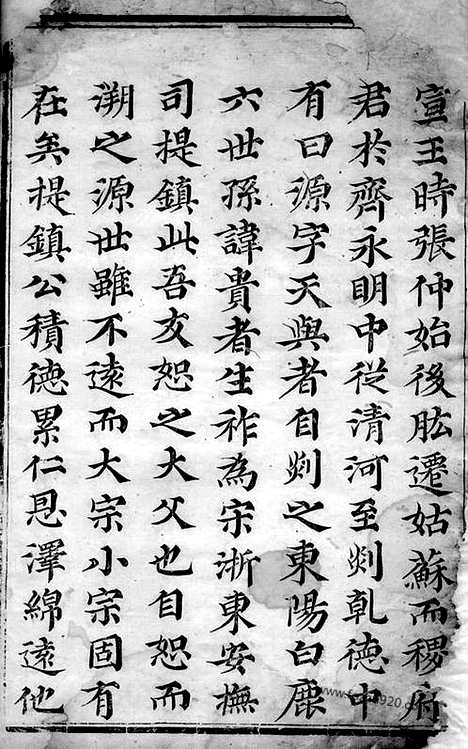 宣王時張仲始後肱遷姑蘇而稷府
君於齊永明中從清河至剡乹德中
有曰源字天與者自剡之東陽白鹿
六世孫諱貴者生祚為宋浙東安撫
司提鎮此吾友恕之大父也自恕而
溯之源世雖不遠而大宗小宗固有
在矣提鎮公積德累仁恩澤綿遠他